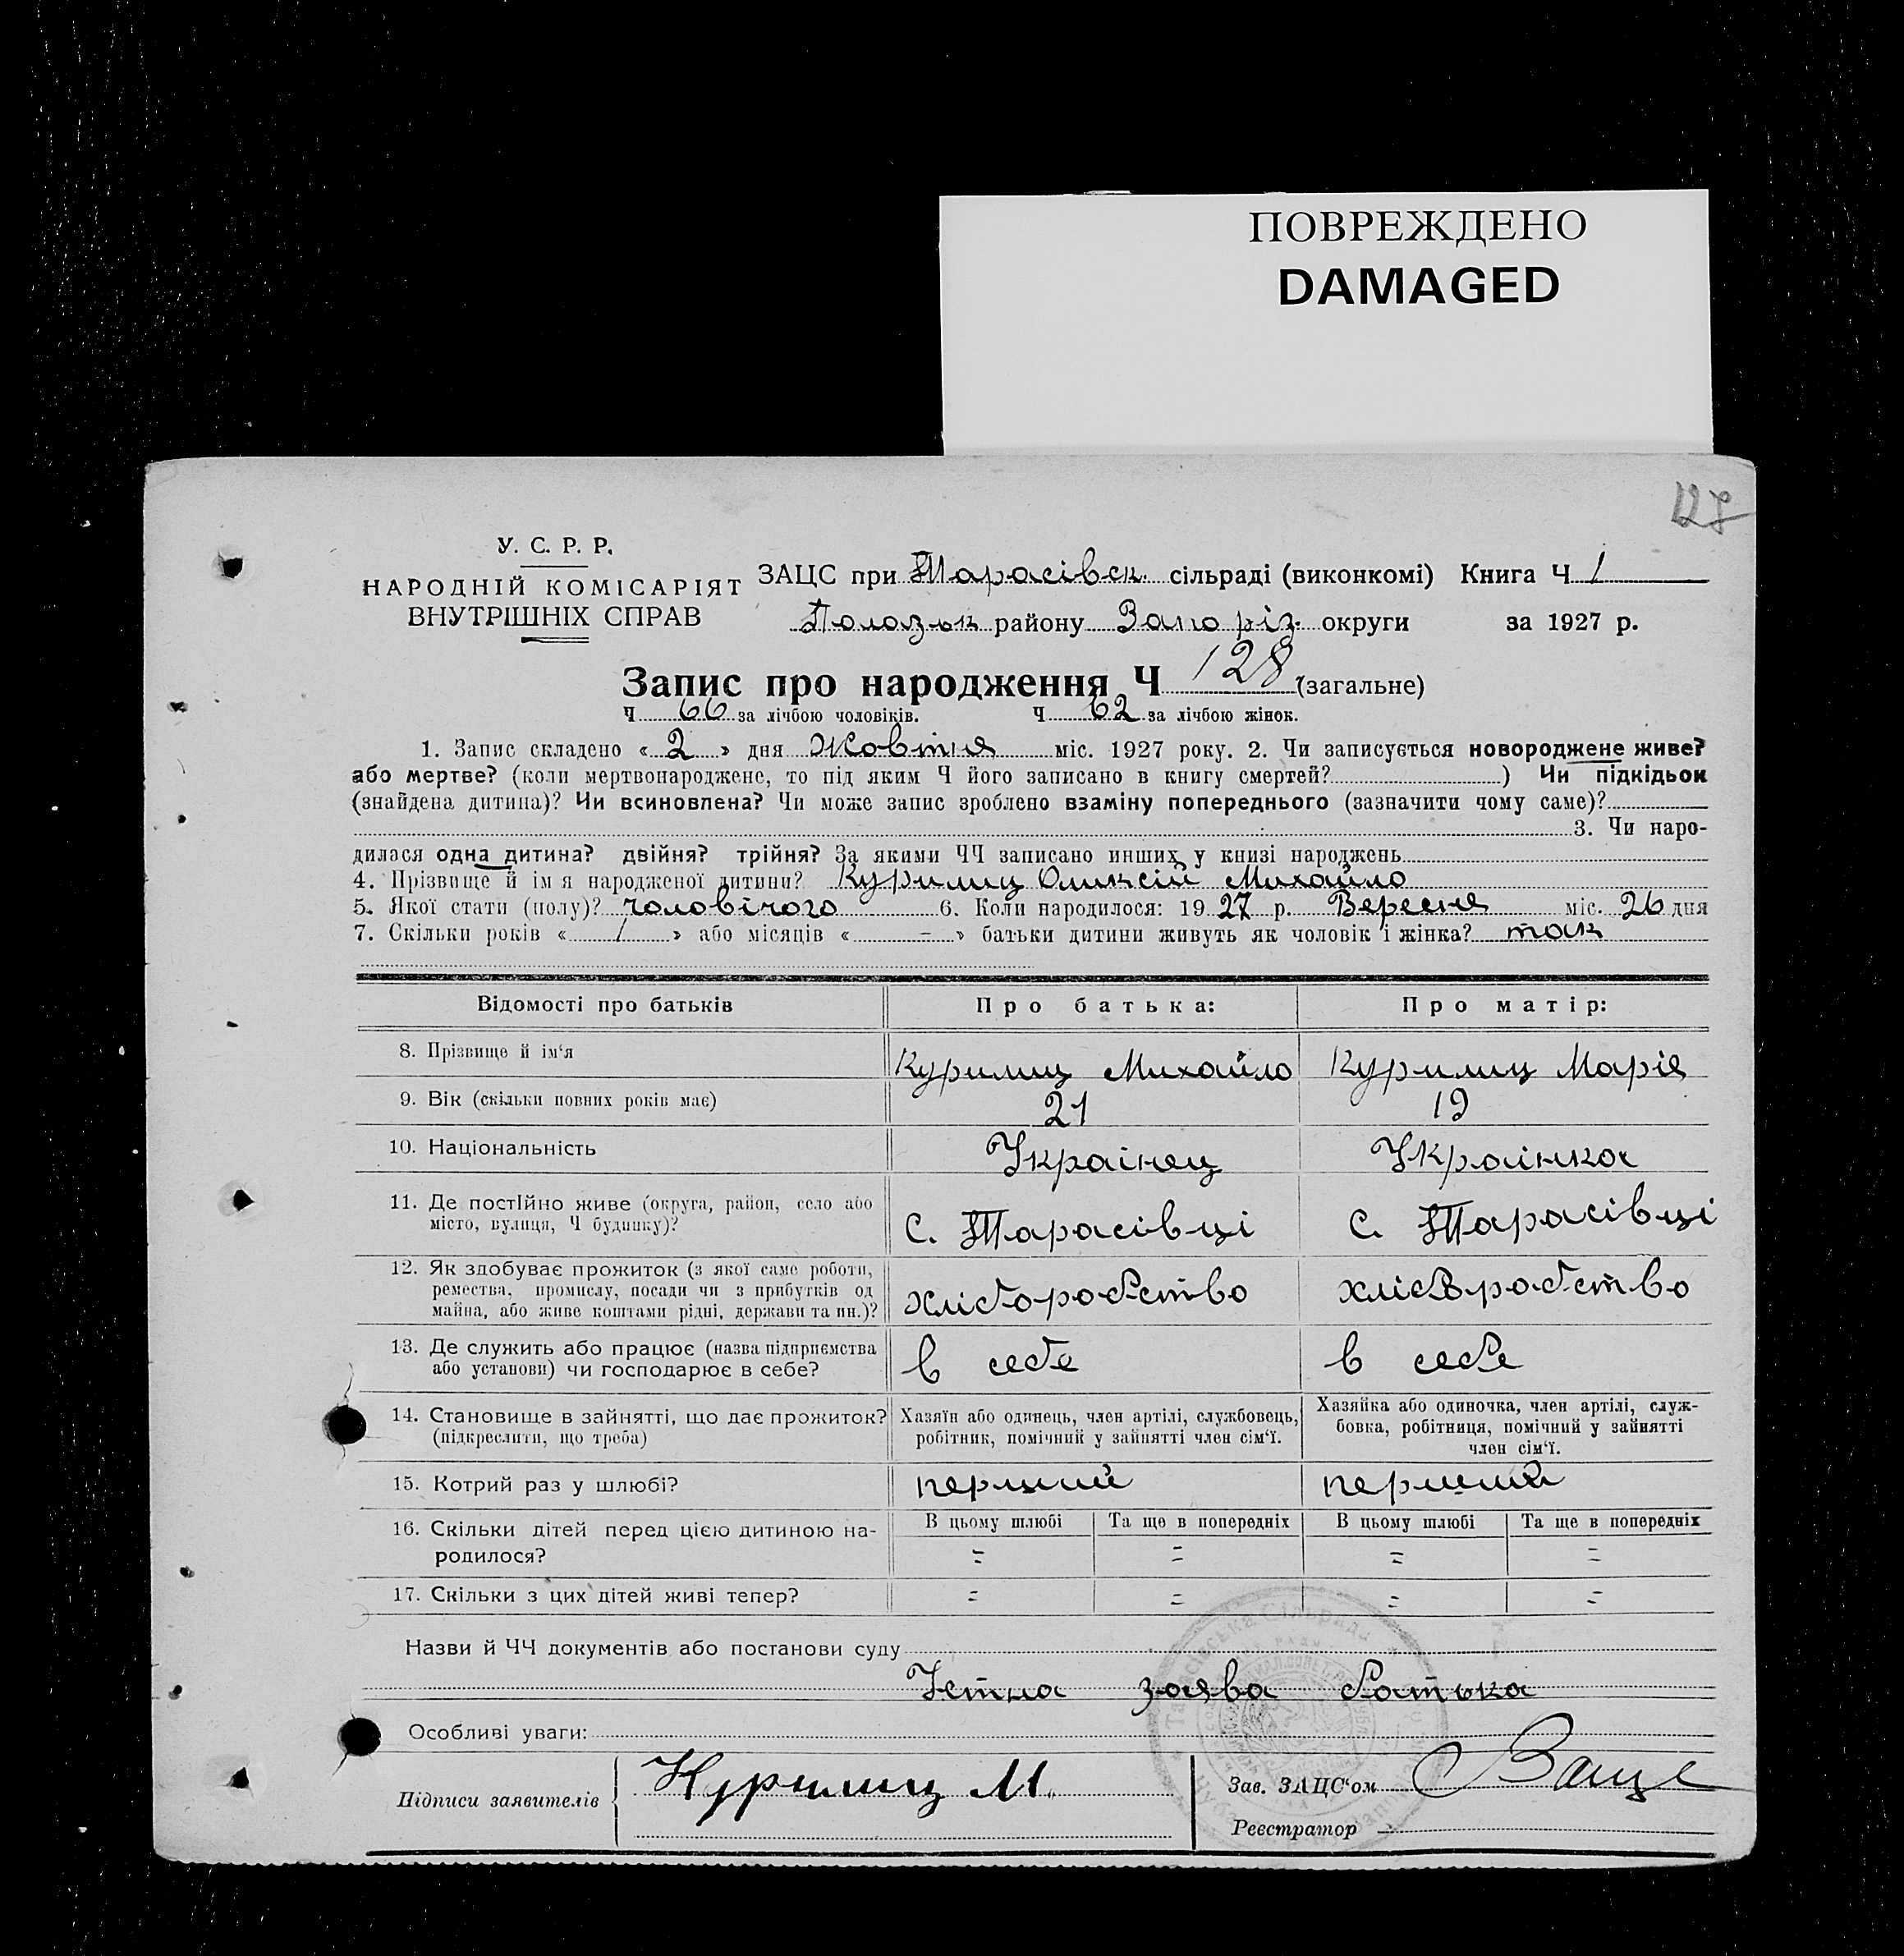 ПОВРЕЖДЕНО
DAMAGED
127
У. С. Р. Р.
НАРОДНІЙ КОМІСАРІЯТ
ВНУТРІШНІХ СПРАВ
ЗАЦС при Тарасівск. сільраді (виконкомі) Книга Ч 1
Полозьк району Запоріз. округи за 1927 р.
Запис про народження Ч 128 (загальне)
Ч 66 за лічбою чоловіків. Ч 62 за лічбою жінок.
1. Запис складено « 2 » дня Жовтня міс. 1927 року. 2. Чи записується новороджене живе?
або мертве? (коли мертвонароджене, то під яким Ч його записано в книгу смертей? ) Чи підкідьок
(знайдена дитина)? Чи всиновлена? Чи може запис зроблено взаміну попереднього (зазначити чому саме)?
3. Чи наро-
дилася одна дитина? двійня? трійня? За якими ЧЧ записано инших у книзі народжень
4. Прізвище й ім я народженої дитини? Курилиц Оликсій Михайло
5. Якої стати (полу)? чоловічого 6. Коли народилося: 19 27 р. Вересня міс. 26 дня
7. Скільки років « 1 » або місяців « - » батьки дитини живуть як чоловік і жінка? так
Відомості про батьків Про батька: Про матір:
8. Прізвище й ім‘я Курилиц Михайло Курилиц Марія
9. Вік (скільки повних років має) 21 19
10. Національність Українец Українка
11. Де постІйно живе (округа, район, село або
місто, вулиця, Ч будинку)? С. Тарасівці С. Тарасівці
12. Як здобуває прожиток (з якої саме роботи,
ремества, промислу, посади чи з прибутків од
майна, або живе коштами рідні, держави та ин.)? хліборобство хліборобство
13. Де служить або працює (назва підприємства
або установи) чи господарює в себе? в себе в себе
14. Становище в зайнятті, що дає прожиток?
(підкреслити, що треба)
Хазяїн або одинець, член артілі, службовець,
робітник, помічний у зайнятті член сім‘ї.
Хазяйка або одиночка, член артілі, служ-
бовка, робітниця, помічний у зайнятті
член сім‘ї.
15. Котрий раз у шлюбі? перший перший
16. Скільки дітей перед цією дитиною на-
родилося?
В цьому шлюбі Та ще в попередніх В цьому шлюбі Та ще в попередніх
= = = =
17. Скільки з цих дітей живі тепер? = = = =
Назви й ЧЧ документів або постанови суду
Устна заява батька
Особливі уваги:
Підписи заявителів Курилиц М. Зав. ЗАЦС‘ом
Реєстратор
Тарасівська Сільрада